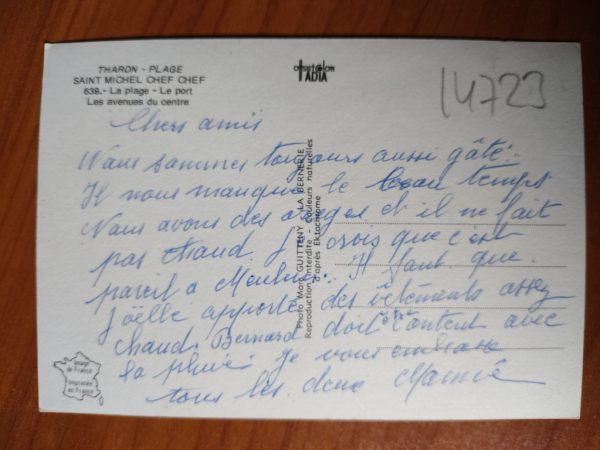 THARON - PLAGE
SAINT MICHEL CHEF CHEF
639.- La plage - Le port
Les avenues du centre
TADIA
14723
Chers amis
Nous sommes toujours aussi gâté.
Il nous manque le beau temps
Nous avons des orages et il ne fait
pas chaud. Je crois que c'est
pareil a Meulun. Il faut que
Joelle apporte des vêtements assez
chaud. Bernard doit être content avec
la pluie je vous embrasse
tous les deux Mamie
Photo Marc GUITTENY - LA BERNERIE
Reproduction interdite - Couleurs naturelles
d'après Ektachrome
Image
de France
Imprimée
en France